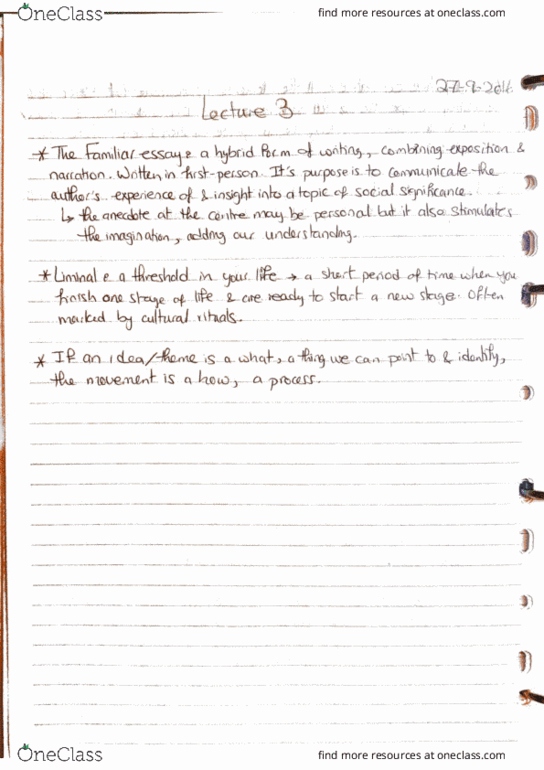 OneClass
find more resources at oneclass.com
27-9-2016
Lecture 3
* The Familiar essay: a hybrid form of writing, combining exposition &
narration. Written in first-person. It's purpose is to communicate the
author's experience of & insight into a topic of social significance.
↳ the anecdote at the centre may be personal but it also stimulates
the imagination, adding our understanding.
* Liminal: a threshold in your life → a short period of time when you
finish one stage of life & are ready to start a new stage. Often
marked by cultural rituals.
* If an idea/theme is a what, a thing we can point to & identify,
the movement is a how, a process.
OneClass
find more resources at oneclass.com